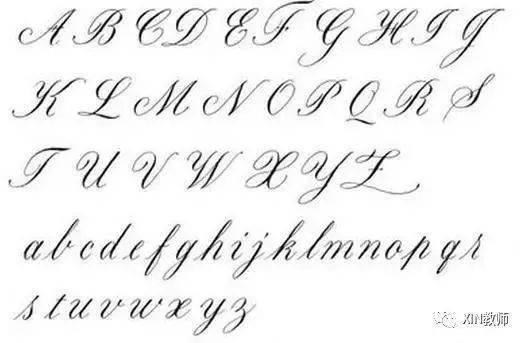 A B C D E F G H I J
K L M N O P Q R S
T U V W X Y Z
a b c d e f g h i j k l m n o p q r
s t u v w x y z
XIN教师